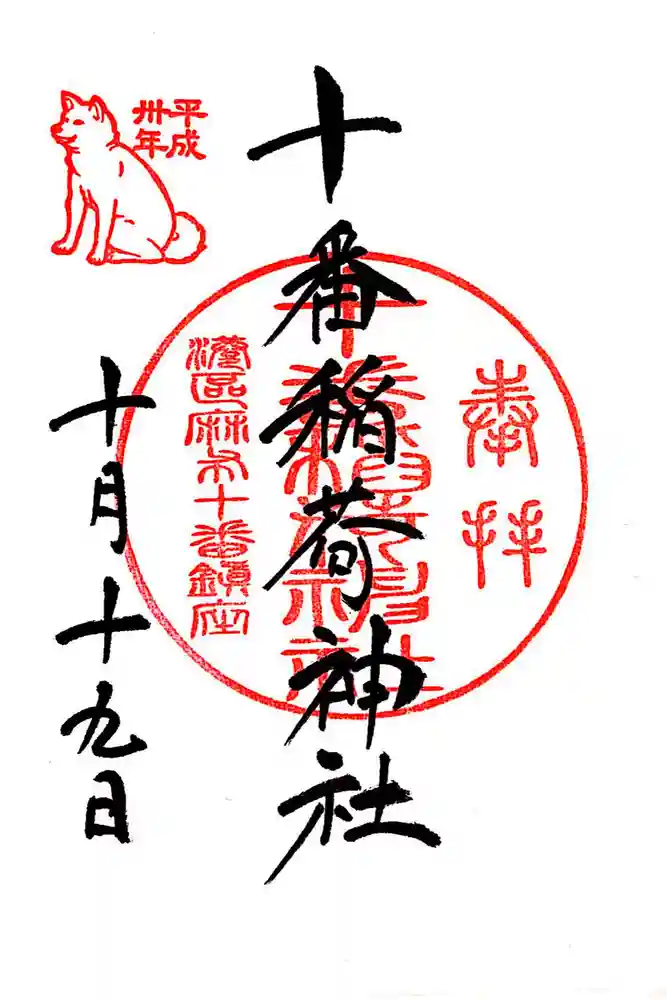 奉拝
十番稲荷神社
港區麻布十番鎮座
平成
卅年
十月十九日